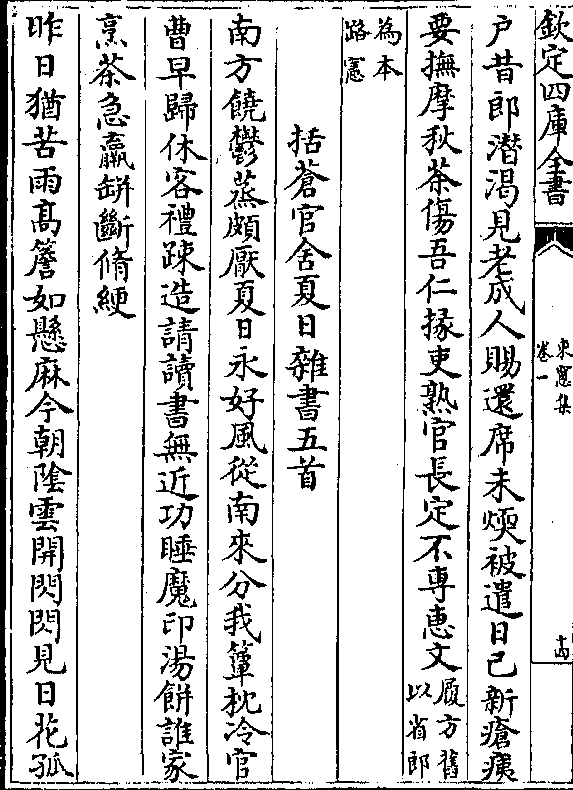 欽定四庫全書
東窻集
卷一
十四
户昔郎潛渴見老成人賜還席未煗被遣日已新瘡痍
要撫摩秋荼傷吾仁掾吏熟官長定不專惠文履方舊
以省郎
為本
路憲
括蒼官舍夏日雜書五首
南方饒鬱蒸頗厭夏日永好風從南來分我簟枕冷官
曹早歸休客禮疎造請讀書無近功睡魔印湯餅誰家
烹茶急羸缾斷脩綆
昨日猶苦雨髙簷如懸麻今朝陰雲開閃閃見日花孤